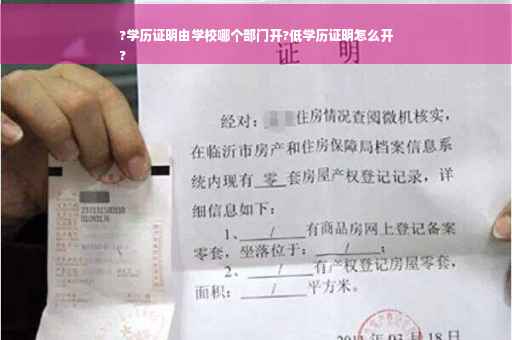 ?学历证明由学校哪个部门开?低学历证明怎么开
?
证 明
经对：住房情况查阅微机核实，
在临沂市房产和住房保障局档案信息系
统内现有 零 套房屋产权登记记录，详
细信息如下：
1、 / 有商品房网上登记备案
零套，坐落位于： / ；
2、 / 有产权登记房屋零套，
面积： / 平方米。